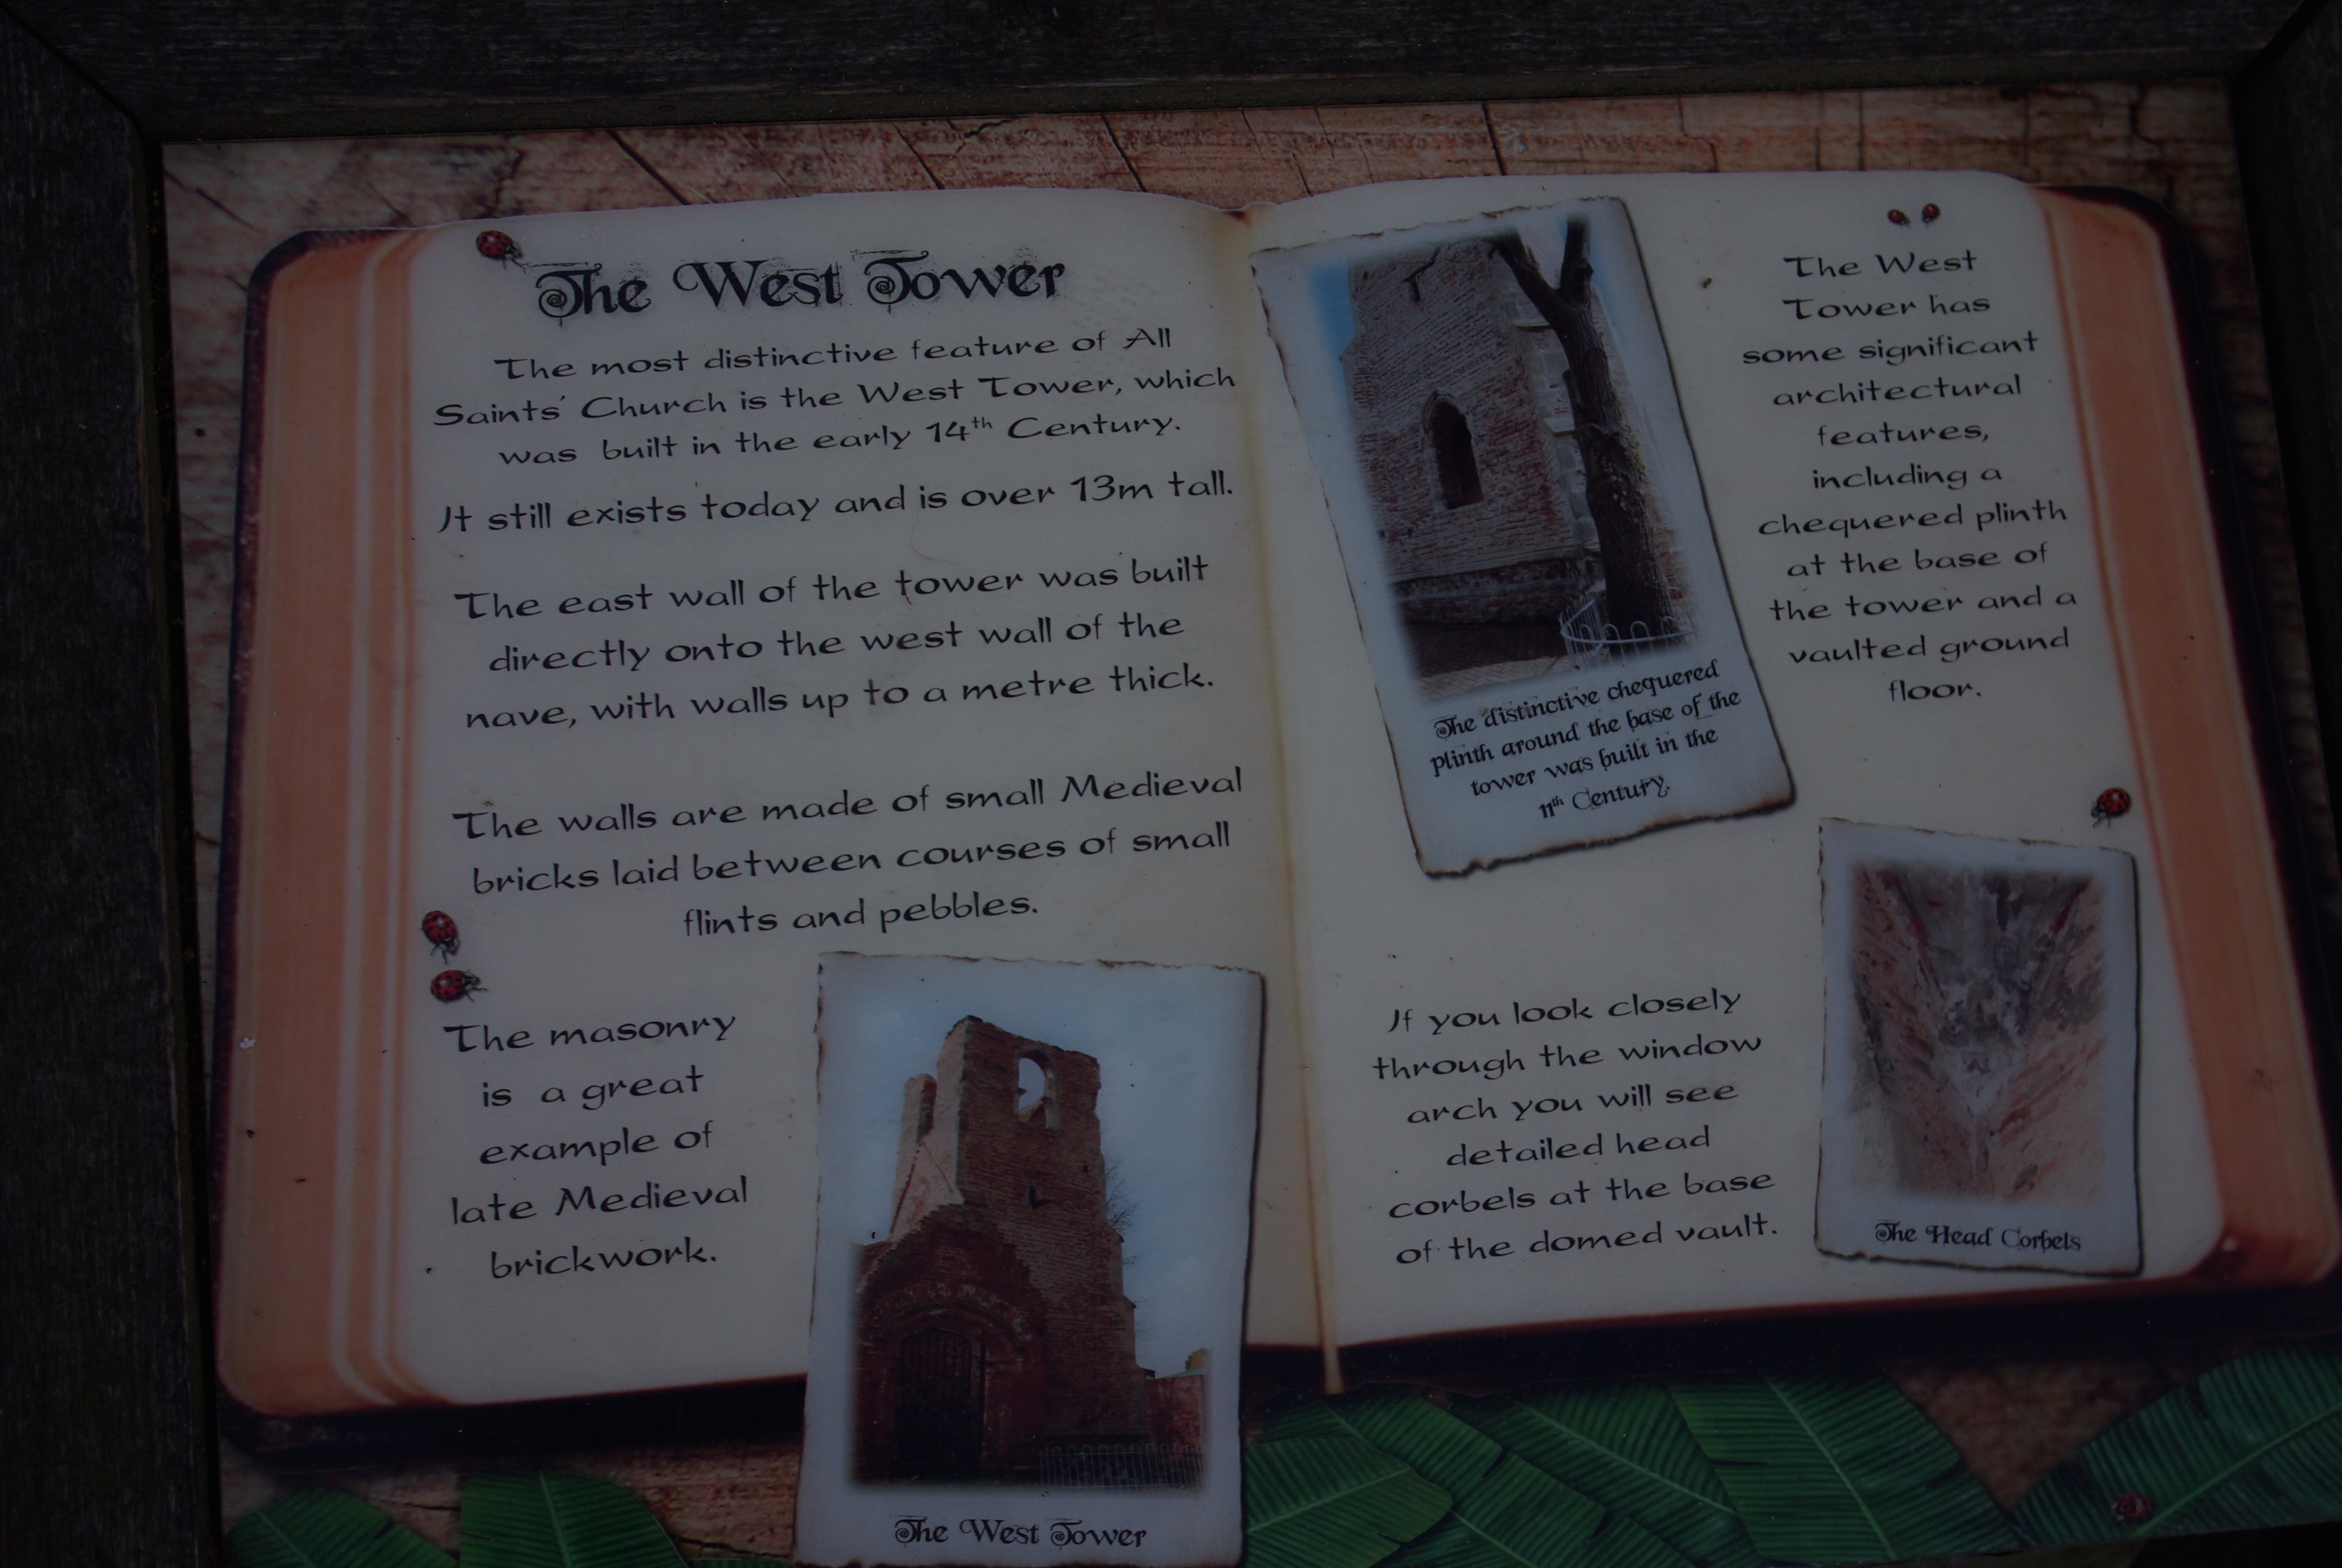 The West Tower
The most distinctive feature of All
Saints' Church is the West Tower, which
was built in the early 14th Century.
It still exists today and is over 13m tall.
The east wall of the tower was built
directly onto the west wall of the
nave, with walls up to a metre thick.
The walls are made of small Medieval
bricks laid between courses of small
flints and pebbles.
The masonry
is a great
example of
late Medieval
brickwork.
The West Tower
The distinctive chequered
plinth around the base of the
tower was built in the
11th Century.
The West
Tower has
some significant
architectural
features,
including a
chequered plinth
at the base of
the tower and a
vaulted ground
floor.
If you look closely
through the window
arch you will see
detailed head
corbels at the base
of the domed vault.
The Head Corbels